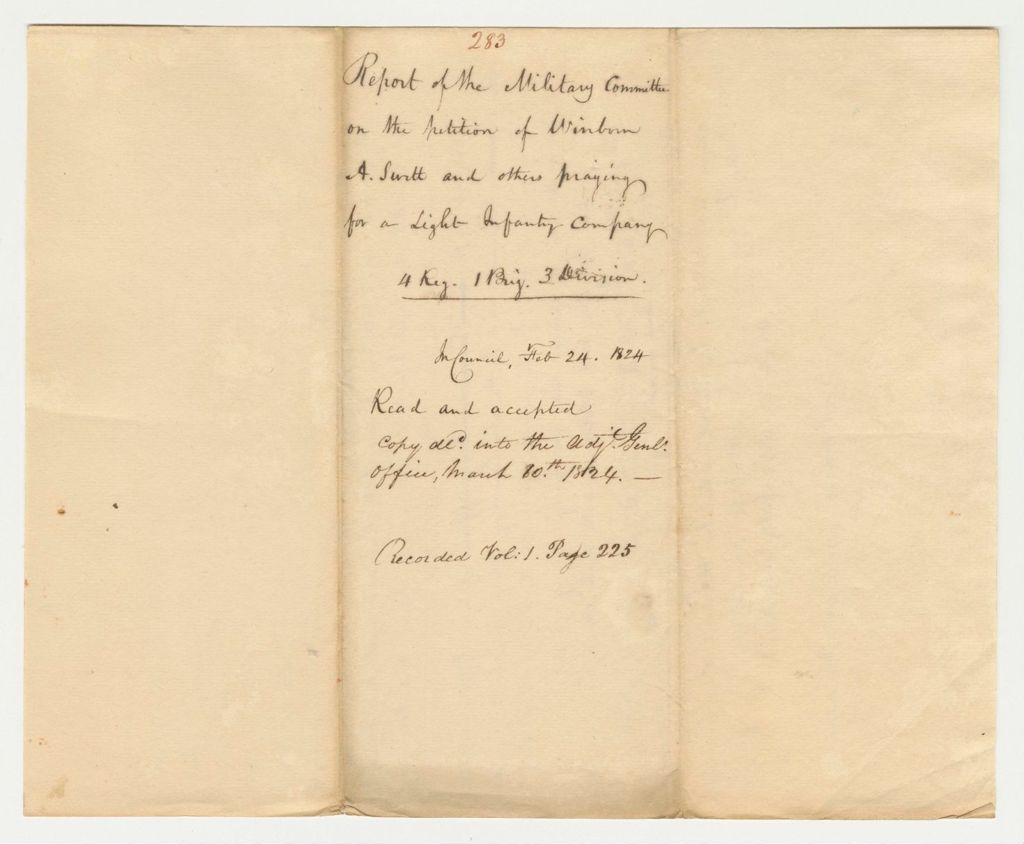 283
Report of the Military Committee
on the petition of Winborn
A. Swett and others praying
for a Light Infantry Company
4 Reg. 1 Brig. 3 Division.
In Council, Feb 24. 1824
Read and accepted
copy del'd. into the Adjt. Genl's.
Office, March 20.th 1824. —
Recorded Vol: 1. Page 225